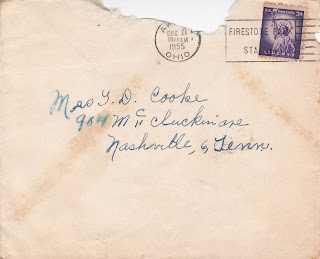 DEC 21
1955
OHIO
FIRESTONE
STA
3¢
Mrs. G. D. Cooke
904 McCluckin ave
Nashville, 6 Tenn.